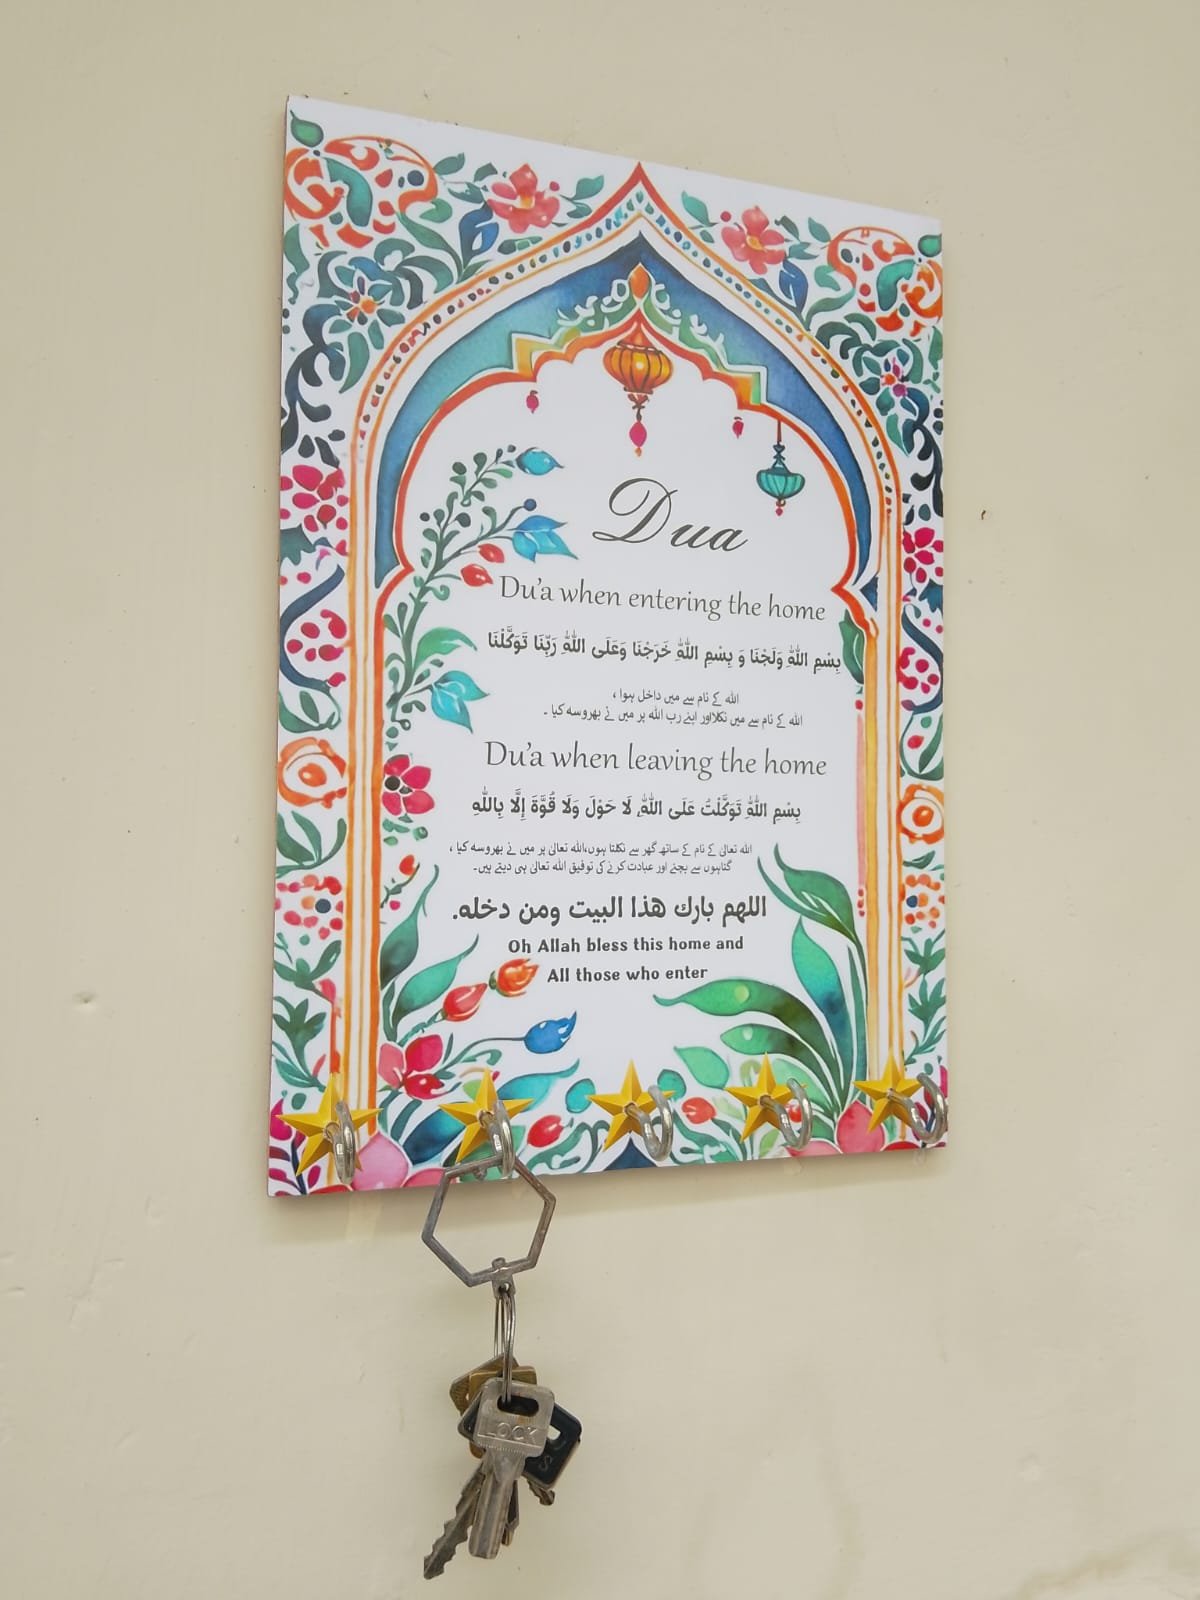 Dua
Du'a when entering the home
بِسْمِ اللّٰهِ وَلَجْنَا وَ بِسْمِ اللّٰهِ خَرَجْنَا وَعَلَى اللّٰهِ رَبِّنَا تَوَكَّلْنَا
اللہ کے نام سے میں داخل ہوا ،
اللہ کے نام سے میں نکلااور اپنے رب اللہ پر میں نے بھروسہ کیا ۔
Du'a when leaving the home
بِسْمِ اللّٰهِ تَوَكَّلْتُ عَلَى اللّٰهِ، لَا حَوْلَ وَلَا قُوَّةَ إِلَّا بِاللّٰهِ
اللہ تعالیٰ کے نام کے ساتھ گھر سے نکلتا ہوں،اللہ تعالیٰ پر میں نے بھروسہ کیا ،
گناہوں سے بچنے اور عبادت کرنے کی توفیق اللہ تعالیٰ ہی دیتے ہیں۔
اللهم بارك هذا البيت ومن دخله.
Oh Allah bless this home and
All those who enter
LOCK